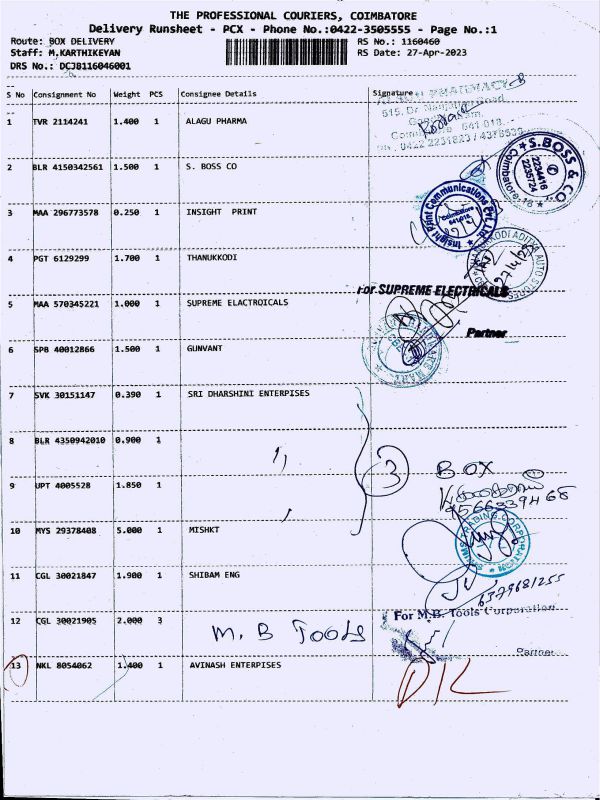 THE PROFESSIONAL COURIERS, COIMBATORE
Delivery Runsheet - PCX - Phone No.:0422-3505555 - Page No.:1
Route: BOX DELIVERY RS No.: 1160460
Staff: M.KARTHIKEYAN RS Date: 27-Apr-2023
DRS No.: DCJB116046001
S No Consignment No Weight PCS Consignee Details Signature
1 TVR 2114241 1.400 1 ALAGU PHARMA
2 BLR 4150342561 1.500 1 S. BOSS CO
S. BOSS & CO
2234416
2235724
3 MAA 296773578 0.250 1 INSIGHT PRINT
Insight Print Communications Pvt Ltd
4 PGT 6129299 1.700 1 THANUKKODI
27/4/23
For SUPREME ELECTRICALS
5 MAA 570345221 1.000 1 SUPREME ELACTROICALS
Partner
6 SPB 40012866 1.500 1 GUNVANT
7 SVK 30151147 0.390 1 SRI DHARSHINI ENTERPISES
8 BLR 4350942010 0.900 1 ,,
3 BOX
9 UPT 4005528 1.850 1 ,
10 MYS 29378408 5.000 1 MISHKT
11 CGL 30021847 1.900 1 SHIBAM ENG
6379681255
12 CGL 30021905 2.000 3 M. B TOOLS
For M.B. Tools Corporation
Partner
13 NKL 8054062 1.400 1 AVINASH ENTERPISES